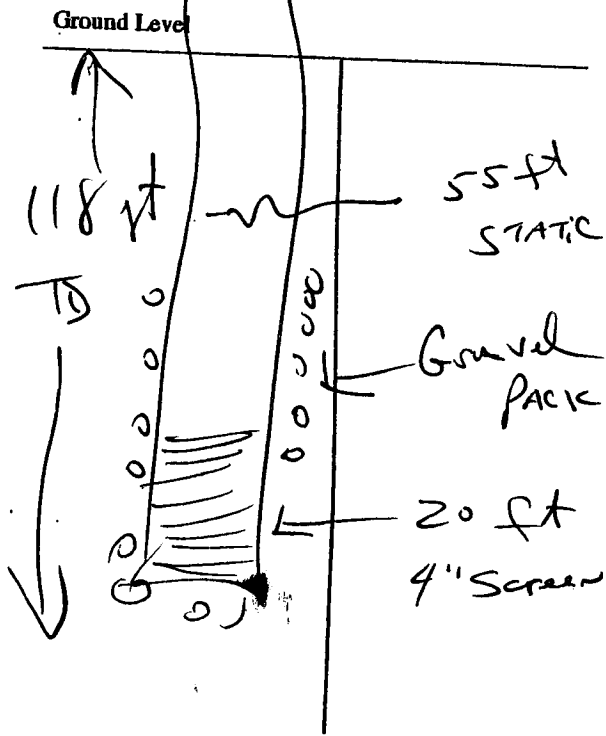 Ground Level
118 ft
TD
55 ft
STATIC
Gravel
PACK
20 ft
4" Screen